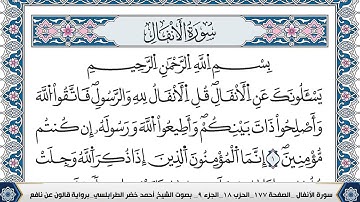 سُورَةُ الْأَنْفَالِ
بِسْمِ اللَّهِ الرَّحْمَٰنِ الرَّحِيمِ
يَسْـَٔلُونَكَ عَنِ الْأَنْفَالِ قُلِ الْأَنْفَالُ لِلهِ وَالرَّسُولِ فَاتَّقُوا اللَّهَ
وَأَصْلِحُوا ذَاتَ بَيْنِكُمْ وَأَطِيعُوا اللَّهَ وَرَسُولَهُ إِن كُنتُم
مُّومِنِينَ ١ إِنَّمَا الْمُومِنُونَ الَّذِينَ إِذَا ذُكِرَ اللَّهُ وَجِلَتْ
سورة الأنفال _الصفحة ١٧٧_الحزب ١٨_الجزء ٩_ بصوت الشيخ أحمد خضر الطرابلسي برواية قالون عن نافع